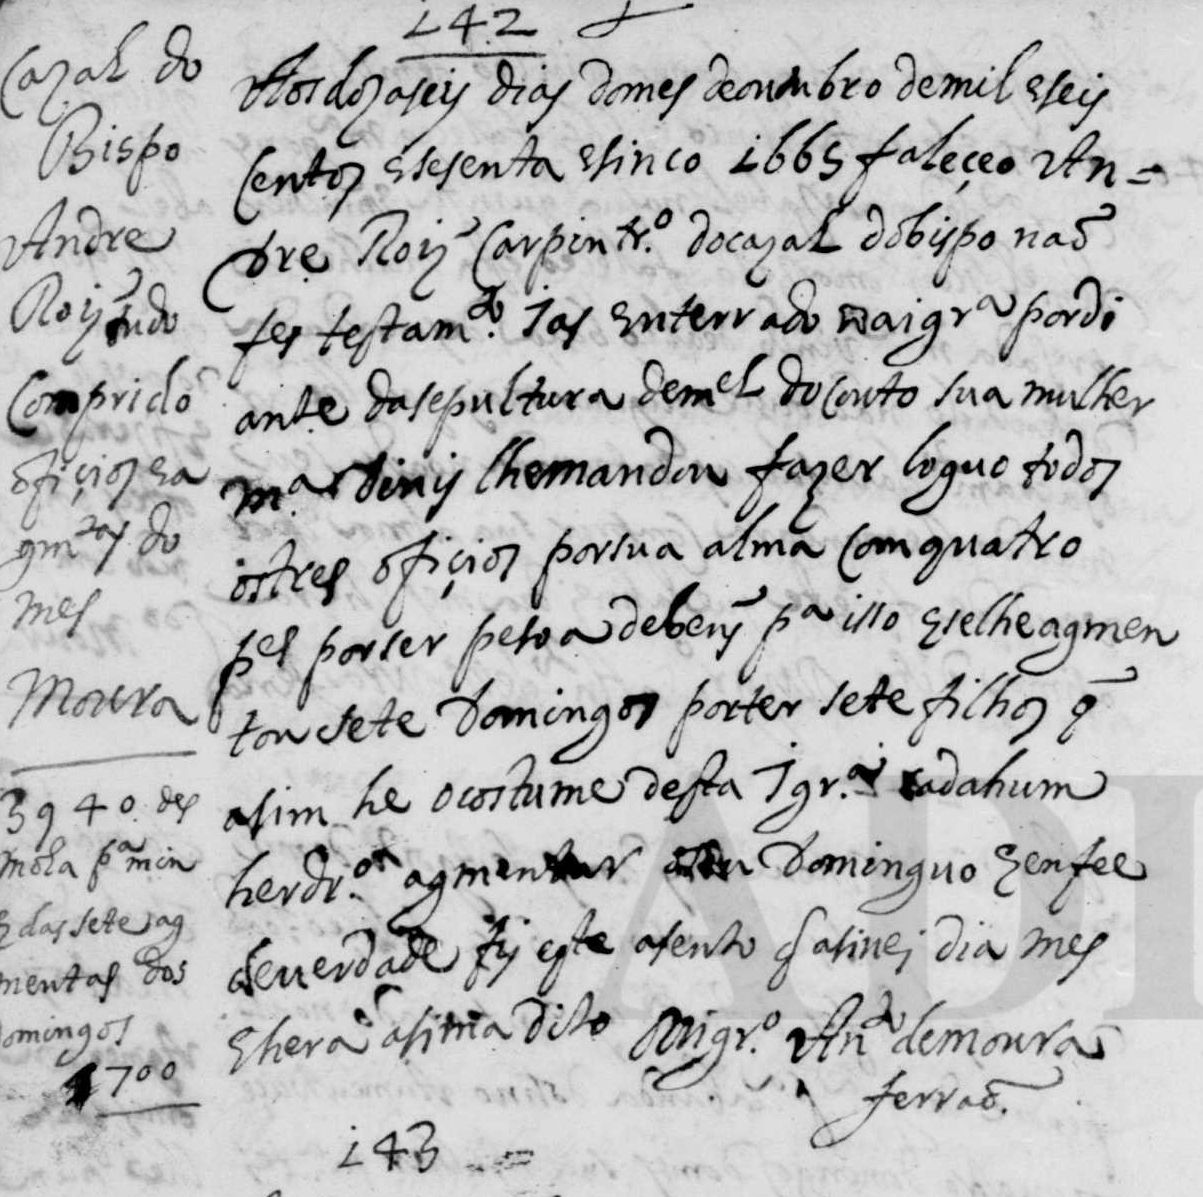 142
Cazal do
Bispo
Andre
Roiz tudo
Comprido
ofiçios e a
gmtas do
mes
Moura
3940 des
mola pa min
e das sete ag
mentas dos
omingos
1700
Aos dozaseis dias do mes de outubro de mil e seis
Centos e sesenta e sinco 1665 faleçeo An=
dre Roiz Carpintro. do cazal do bispo não
fes testamdo. Ias enterrado na igra por di
ante da sepultura de mel do Couto sua mulher
ma dinis lhe mandou fazer loguo todos
os tres ofiçios por sua alma Com quatro
pes por ser pesoa de bens pa isso e se lhe agmen
tou sete Domingos por ter sete filhos q
asim he o costume desta Igra. cada hum
herdro. agmentar Dominguo e en fee
de verdade fis este asento q asinei dia mes
e hera asima dito O Migro. Anto de moura
ferrão.
143 =
ADI